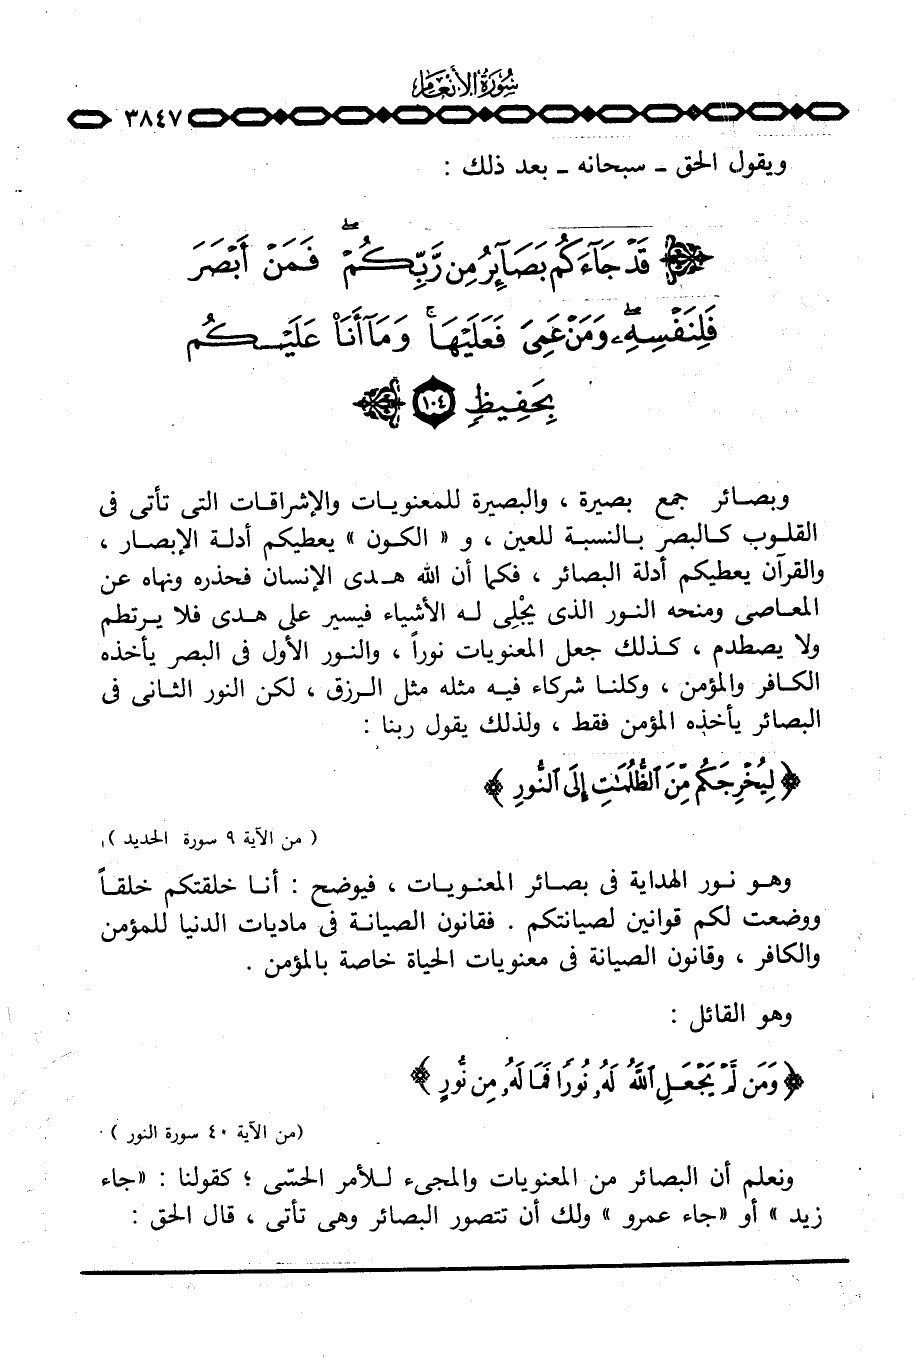 سورة الأنعام
٣٨٤٧
ويقول الحق ـ سبحانه ـ بعد ذلك :
قَدْ جَآءَكُم بَصَآئِرُ مِن رَّبِّكُمْ ۖ فَمَنْ أَبْصَرَ
فَلِنَفْسِهِۦ ۖ وَمَنْ عَمِىَ فَعَلَيْهَا ۚ وَمَآ أَنَا۠ عَلَيْكُم
بِحَفِيظٍ ١٠٤
وبصائر جمع بصيرة ، والبصيرة للمعنويات والإشراقات التى تأتى فى
القلوب كالبصر بالنسبة للعين ، و « الكون » يعطيكم أدلة الإبصار ،
والقرآن يعطيكم أدلة البصائر ، فكما أن الله هدى الإنسان فحذره ونهاه عن
المعاصى ومنحه النور الذى يجْلِى له الأشياء فيسير على هدى فلا يرتطم
ولا يصطدم ، كذلك جعل المعنويات نوراً ، والنور الأول فى البصر يأخذه
الكافر والمؤمن ، وكلنا شركاء فيه مثله مثل الرزق ، لكن النور الثانى فى
البصائر يأخذه المؤمن فقط ، ولذلك يقول ربنا :
﴿ لِيُخْرِجَكُم مِّنَ ٱلظُّلُمَٰتِ إِلَى ٱلنُّورِ ﴾
( من الآية ٩ سورة الحديد )
وهو نور الهداية فى بصائر المعنويات ، فيوضح : أنا خلقتكم خلقاً
ووضعت لكم قوانين لصيانتكم . فقانون الصيانة فى ماديات الدنيا للمؤمن
والكافر ، وقانون الصيانة فى معنويات الحياة خاصة بالمؤمن .
وهو القائل :
﴿ وَمَن لَّمْ يَجْعَلِ ٱللَّهُ لَهُۥ نُورًا فَمَا لَهُۥ مِن نُّورٍ ﴾
(من الآية ٤٠ سورة النور )
ونعلم أن البصائر من المعنويات والمجىء للأمر الحسّى ؛ كقولنا : «جاء
زيد » أو «جاء عمرو » ولك أن تتصور البصائر وهى تأتى ، قال الحق :